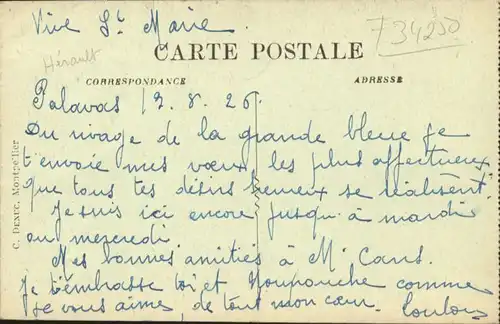 Vive Ste Marie.
F 34250
Hérault
CARTE POSTALE
CORRESPONDANCE
ADRESSE
Palavas 12.8.26.
Du rivage de la grande bleue je
t'envoie mes vœux les plus affectueux
que tous tes désirs heureux se réalisent.
Je suis ici encore jusqu'à mardi
ou mercredi.
Mes bonnes amitiés à M.
Je t'embrasse toi et comme
je vous aime, de tout mon cœur. Loulou
C. DENIT, Montpellier